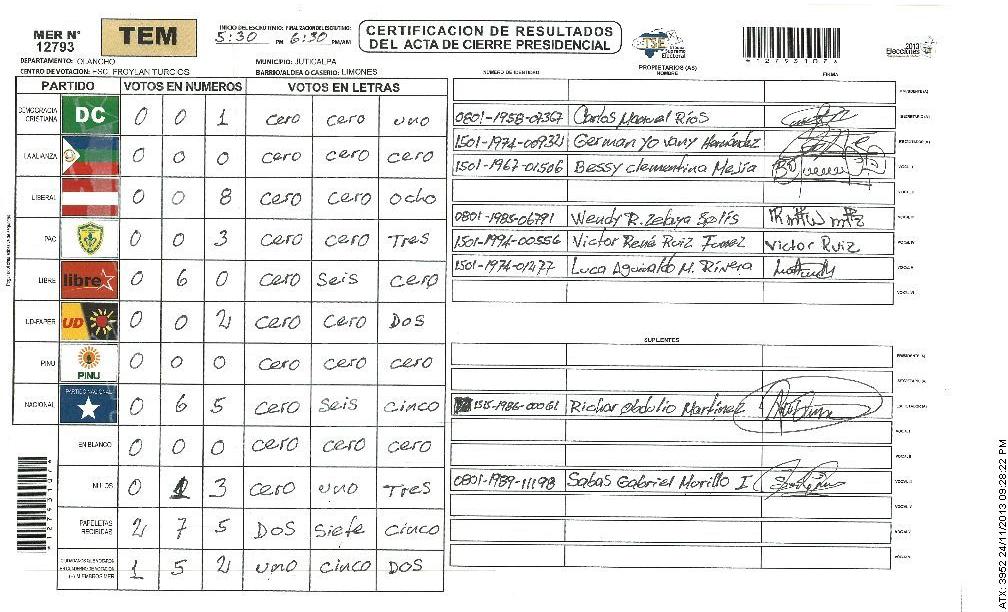 MER N° 12793
TEM
INICIO DEL ESCRUTINIO: 5:30 PM FINALIZACION DEL ESCRUTINIO: 6:30 PM/AM
CERTIFICACION DE RESULTADOS
DEL ACTA DE CIERRE PRESIDENCIAL
TSE Tribunal Supremo Electoral
*12793107*
2013 Elecciones
DEPARTAMENTO: OLANCHO MUNICIPIO: JUTICALPA
CENTRO DE VOTACION: ESC. FROYLAN TURCIOS BARRIO/ALDEA O CASERIO: LIMONES
NÚMERO DE IDENTIDAD PROPIETARIOS (AS) NOMBRE FIRMA
PARTIDO VOTOS EN NUMEROS VOTOS EN LETRAS
DEMOCRACIA CRISTIANA DC 0 0 1 cero cero uno
LA ALIANZA 0 0 0 cero cero cero
LIBERAL 0 0 8 cero cero ocho
PAC 0 0 3 cero cero Tres
LIBRE libre 0 6 0 cero seis cero
UD-FAPER UD 0 0 2 cero cero DOS
PINU PINU 0 0 0 cero cero cero
NACIONAL PARTIDO NACIONAL 0 6 5 cero seis cinco
EN BLANCO 0 0 0 cero cero cero
NULOS 0 1 3 cero uno Tres
PAPELETAS RECIBIDAS 2 7 5 DOS siete cinco
1 5 2 uno cinco DOS
PRESIDENTE(A)
0801-1958-07367 Carlos Manuel Ríos SECRETARIO(A)
1501-1974-00932 German Yovany Hernández ESCRUTADOR(A)
1501-1967-01506 Bessy clementina Mejía VOCAL I
VOCAL II
0801-1985-06791 Wendy R. Zelaya Solís VOCAL III
1501-1994-00556 Victor René Ruiz Funez Victor Ruiz VOCAL IV
1501-1974-01477 Luca Aguinaldo M. Rivera VOCAL V
VOCAL VI
SUPLENTES
PRESIDENTE (A)
SECRETARIO (A)
1515-1986-00061 Richar Obdulio Martinez ESCRUTADOR(A)
VOCAL I
VOCAL II
0801-1989-11198 Sabas Gabriel Murillo I VOCAL III
VOCAL IV
VOCAL V
*12793107*
ATX: 3952 24/11/2013 09:28:22 PM